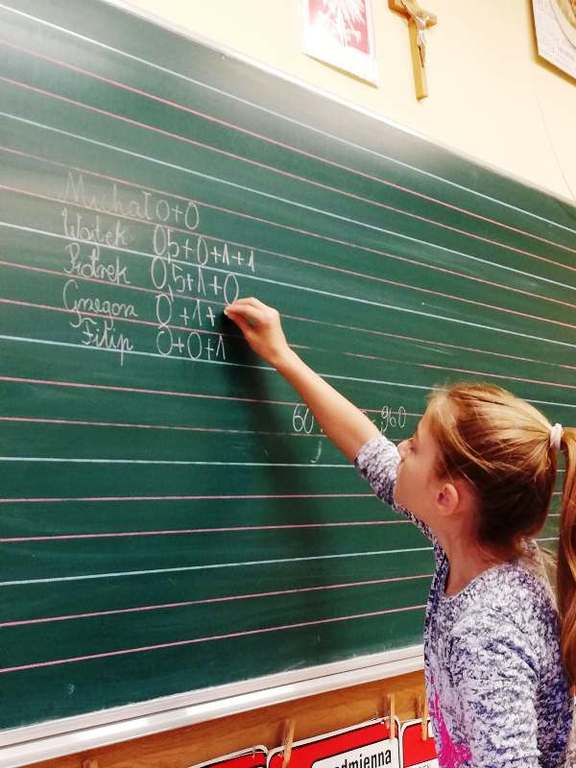 Michał 0+0
Wojtek 0,5+0+1+1
Piotrek 0,5+1+0
Grzegorz 0+1+
Filip 0+0+1
60 960
odmienna